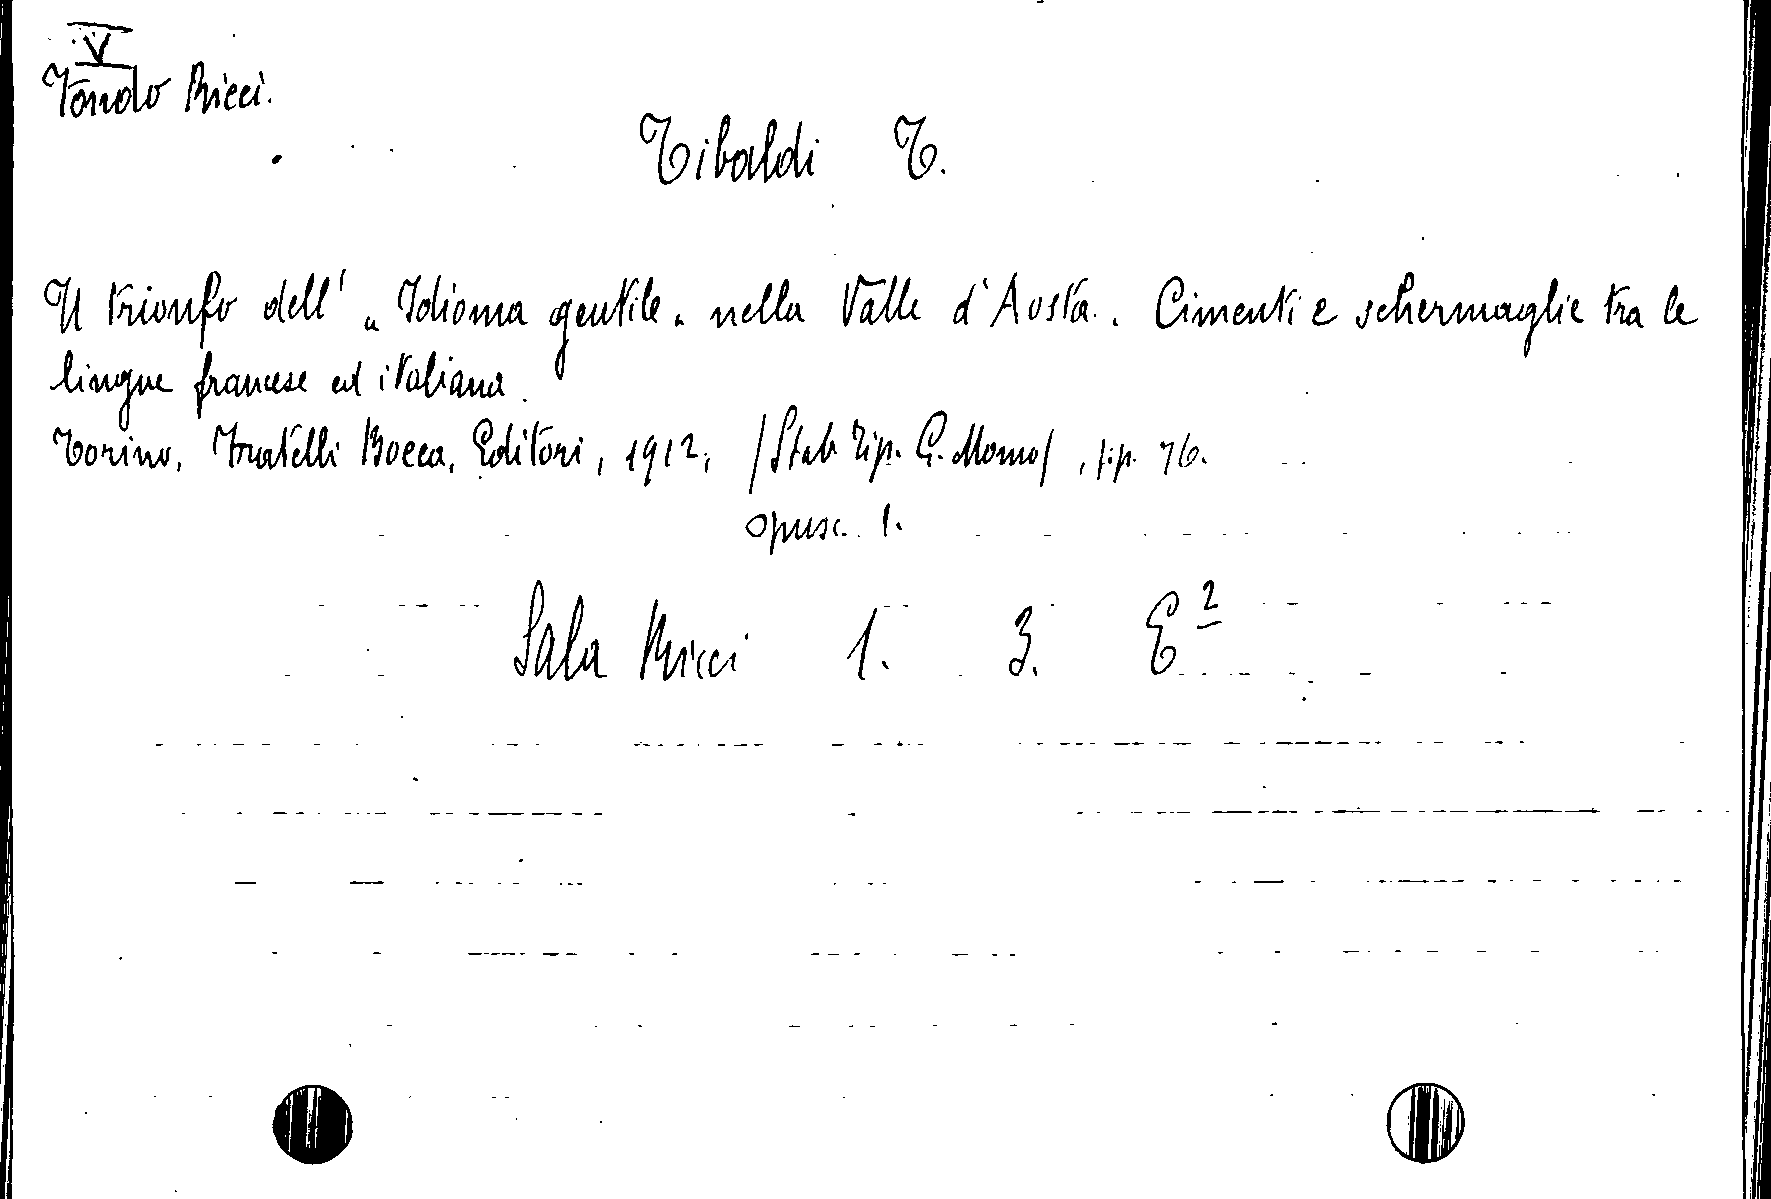 V
Fondo Ricci.
Tibaldi T.
Il trionfo dell' „ Idioma gentile „ nella Valle d'Aosta. . Cimenti e schermaglie tra le
lingue francese ed italiana.
Torino, Fratelli Bocca, Editori, 1912, /Stab. Tip. G. Momo/, pp. 76.
opusc. 1.
Sala Ricci 1. 3. E²